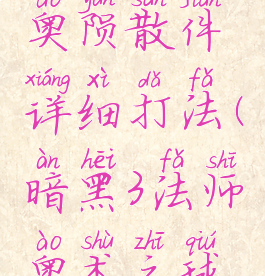 ào yǔn sǎn jiàn
奥陨散件
xiáng xì dǎ fǎ
详细打法(
àn hēi fǎ shī
暗黑3法师
ào shù zhī qiú
奥术之球